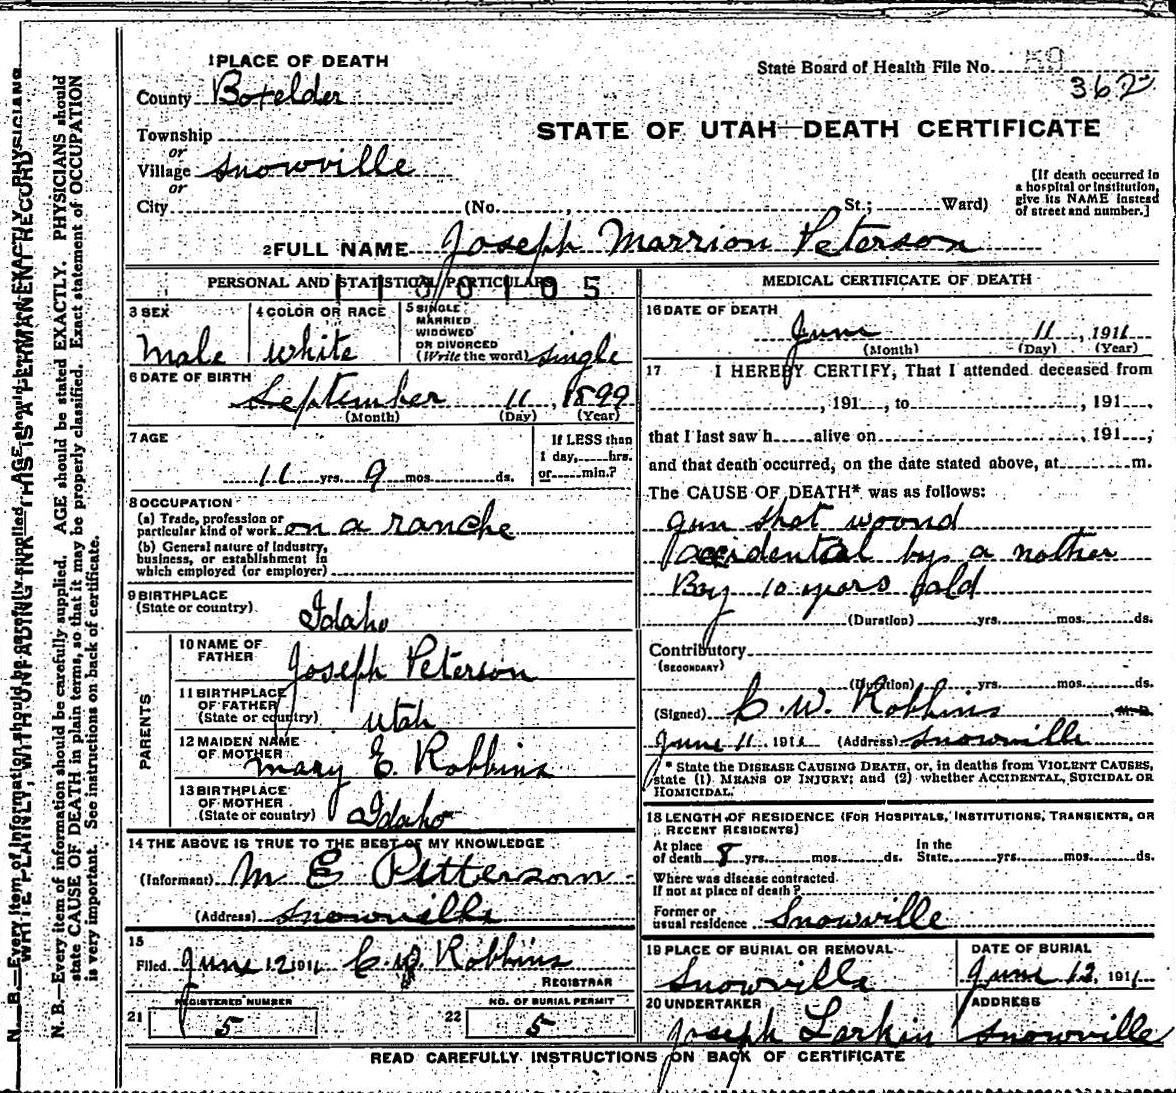 N. B.—Every item of information should be carefully supplied. AGE should be stated EXACTLY. PHYSICIANS
WRITE PLAINLY, WITH UNFADING INK—THIS IS A PERMANENT RECORD
N. B.—Every item of information should be carefully supplied. AGE should be stated EXACTLY. PHYSICIANS should
state CAUSE OF DEATH in plain terms, so that it may be properly classified. Exact statement of OCCUPATION
is very important. See instructions on back of certificate.
1 PLACE OF DEATH
County Boxelder
Township
or
Village Snowville
or
City (No. , St.; Ward)
State Board of Health File No. 59
362
STATE OF UTAH—DEATH CERTIFICATE
[If death occurred in
a hospital or institution,
give its NAME instead
of street and number.]
2 FULL NAME Joseph Marrion Peterson
PERSONAL AND STATISTICAL PARTICULARS
3 SEX Male
4 COLOR OR RACE white
5 SINGLE
MARRIED
WIDOWED
OR DIVORCED
(Write the word) single
6 DATE OF BIRTH
September 11, 1899
(Month) (Day) (Year)
7 AGE
11 yrs. 9 mos. ds.
If LESS than
1 day, hrs.
or min.?
8 OCCUPATION
(a) Trade, profession or
particular kind of work on a ranche
(b) General nature of industry,
business, or establishment in
which employed (or employer)
9 BIRTHPLACE
(State or country) Idaho
PARENTS
10 NAME OF
FATHER Joseph Peterson
11 BIRTHPLACE
OF FATHER
(State or country) Utah
12 MAIDEN NAME
OF MOTHER mary E. Robbins
13 BIRTHPLACE
OF MOTHER
(State or country) Idaho
14 THE ABOVE IS TRUE TO THE BEST OF MY KNOWLEDGE
(Informant) M E Pitterson
(Address) Snowville
15
Filed June 12 1911 C. W. Robbins
REGISTRAR
REGISTERED NUMBER
21 5
NO. OF BURIAL PERMIT
22 5
MEDICAL CERTIFICATE OF DEATH
16 DATE OF DEATH
June 11, 1911
(Month) (Day) (Year)
17 I HEREBY CERTIFY, That I attended deceased from
, 191 , to , 191 ,
that I last saw h alive on , 191 ,
and that death occurred, on the date stated above, at m.
The CAUSE OF DEATH* was as follows:
gun shot wound
accidental by a nother
Boy 10 years hold
(Duration) yrs. mos. ds.
Contributory
(SECONDARY)
(Duration) yrs. mos. ds.
(Signed) C. W. Robbins M. D.
June 11, 1911 (Address) Snowville
* State the DISEASE CAUSING DEATH, or, in deaths from VIOLENT CAUSES,
state (1) MEANS OF INJURY; and (2) whether ACCIDENTAL, SUICIDAL OR
HOMICIDAL.
18 LENGTH OF RESIDENCE (FOR HOSPITALS, INSTITUTIONS, TRANSIENTS, OR
RECENT RESIDENTS)
At place
of death 8 yrs. mos. ds.
In the
State yrs. mos. ds.
Where was disease contracted
If not at place of death?
Former or
usual residence Snowville
19 PLACE OF BURIAL OR REMOVAL
Snowville
DATE OF BURIAL
June 12, 1911
20 UNDERTAKER
Joseph Larkin
ADDRESS
Snowville
READ CAREFULLY INSTRUCTIONS ON BACK OF CERTIFICATE